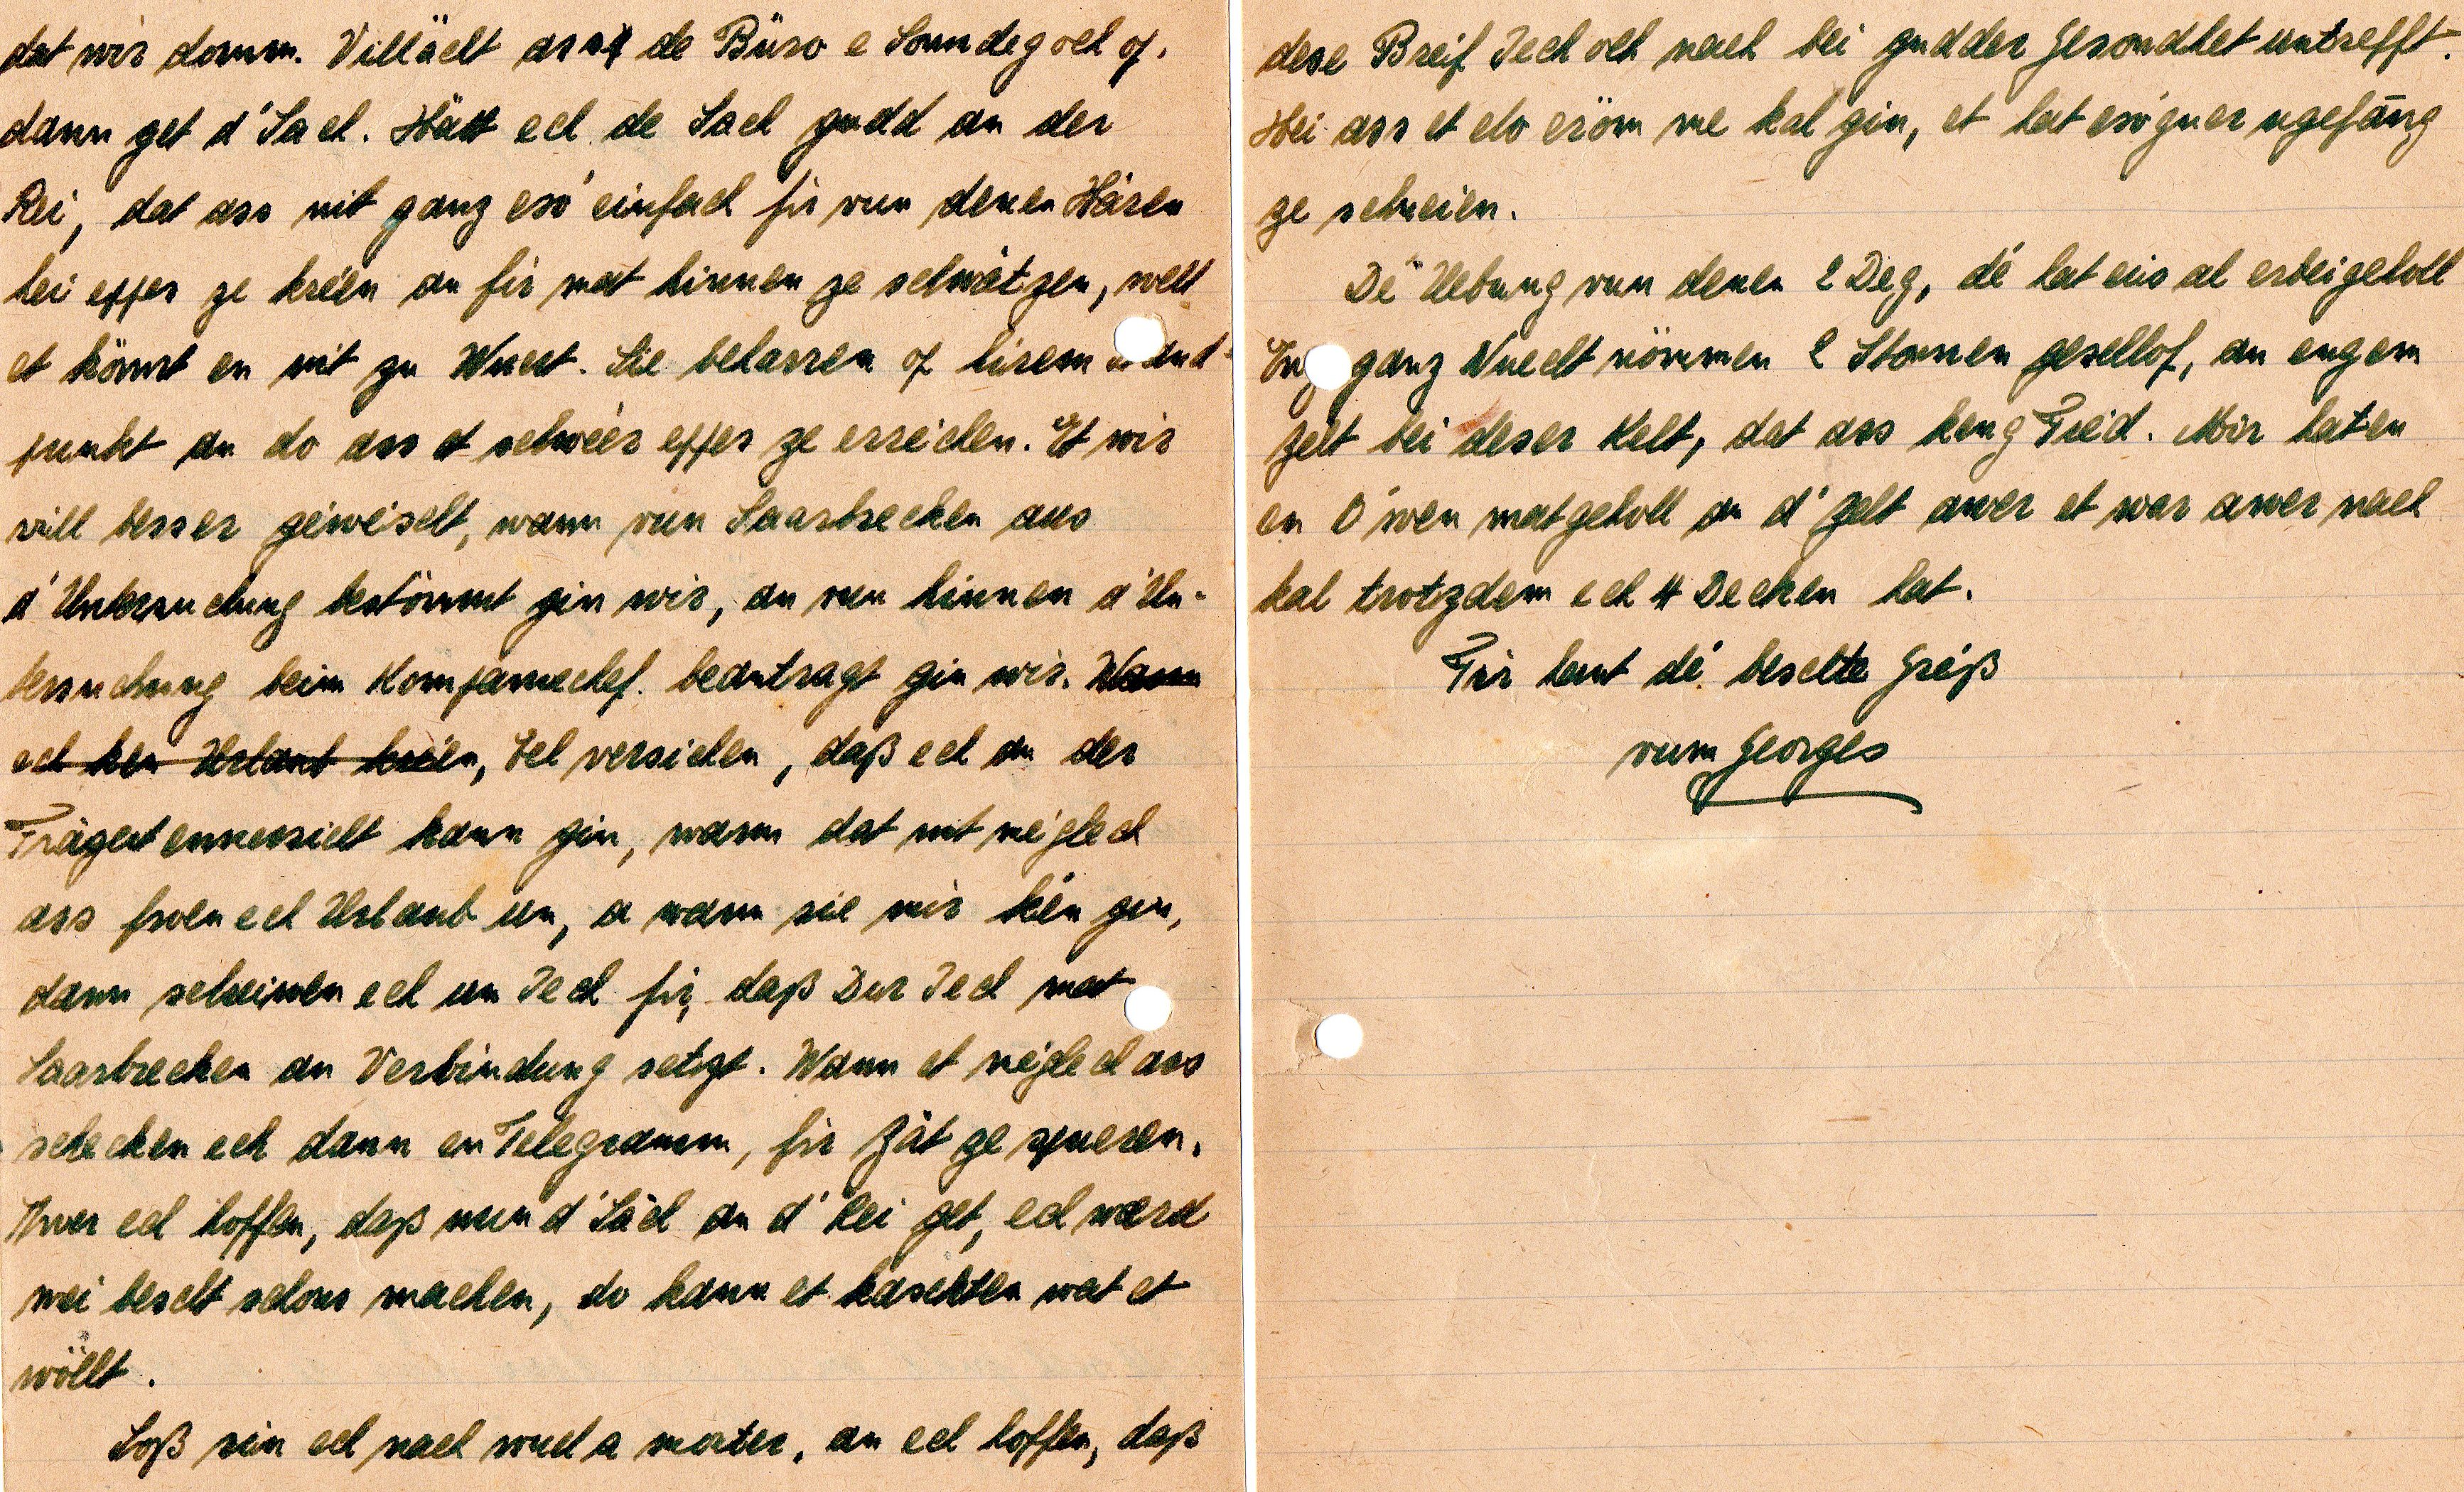 dat wir domm. Villäicht ass de Büro e Sonndeg och op.
dann get d'Sach. Hätt ech de Sach gudd an der
Rei, dat ass nit ganz esó einfach fir vun denen Hären
hei eppes ze kréien an fir mat hinnen ze schwätzen, well
et kömmt en nit zu Wuert. Sie beharren op hirem Stand-
punkt an do ass et schwéier eppes ze erreichen. Et wir
vill besser géiweiselt, wann vun Saarbrecken aus
d'Untersuchung bestömmt gin wir, an vun hinnen d'Un-
tersuchung beim Kompaniechef. beantragt gin wir. Wann
ech ken Urlaub kréien, Ech versichen, daß ech an der
Trägert ennersicht kann gin, wann dat nit méiglech
ass froen ech Urlaub un, a wann sie mir kén gin,
dann schreiwen ech un Iech fir, daß Dir Iech mat
Saarbrecken an Verbindung setzt. Wann et méiglech ass
schecken ech dann en Telegramm, fir Zät ze spueren.
Awer ech hoffen, daß nun d'Säch an d'Rei get, ech werd
mei bescht schons machen, do kann et kaschten wat et
wöllt.
Soß sin ech nach wuel a monter, an ech hoffen, daß
dese Breif Iech och nach bei gudder Gesondhet untrefft.
Hei ass et elo eröm me kal gin, et hat esóguer ugefäng
ze schneien.
Dé Uebung vun denen 2 Deg, dé hat eis al erbeigehol
Eng ganz Nuecht nömmen 2 Stonnen geschlof, an engem
Zelt bei deser Kelt, dat ass keng Fréd. Mir haten
en Ówen matgeholl an d'Zelt awer et war awer nach
kal trotzdem ech 4 Decken hat.
Fir haut dé beschte Gréiß
vum Georges